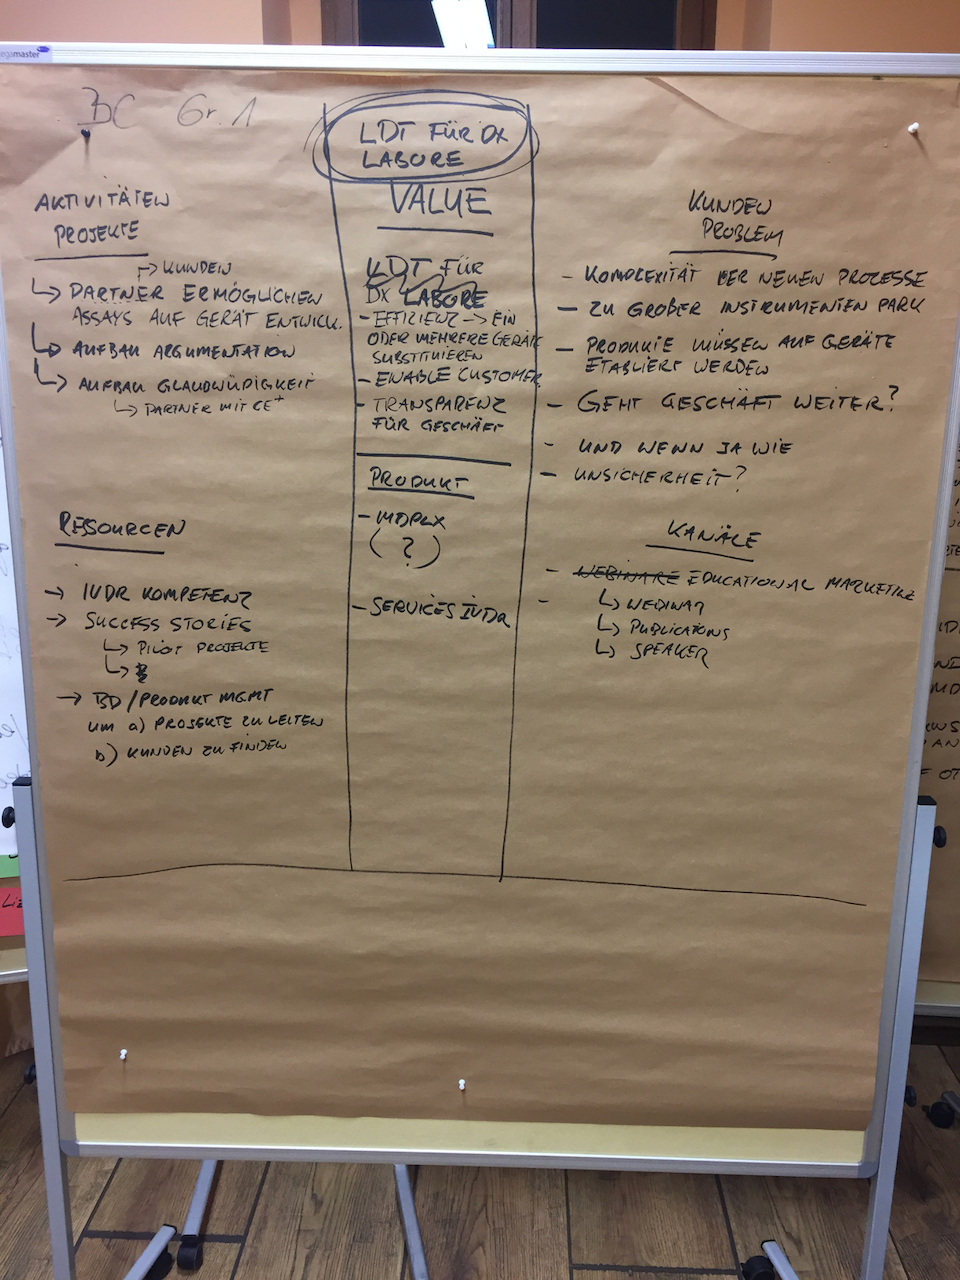 BC Gr. 1
LDT FÜR DX
LABORE
AKTIVITÄTEN
PROJEKTE
→ KUNDEN
↳ PARTNER ERMÖGLICHEN
ASSAYS AUF GERÄT ENTWICK.
↳ AUFBAU ARGUMENTATION
↳ AUFBAU GLAUBWÜDIGKEIT
↳ PARTNER MIT CE+
RESSOURCEN
→ IVDR KOMPETENZ
→ SUCCESS STORIES
↳ PILOT PROJEKTE
↳
→ BD/PRODUKT MGMT
UM a) PROJEKTE ZU LEITEN
b) KUNDEN ZU FINDEN
VALUE
LDT FÜR
DX LABORE
- EFFIZIENZ → EIN
ODER MEHRERE GERÄTE
SUBSTITUIEREN
- ENABLE CUSTOMER
- TRANSPARENZ
FÜR GESCHÄFT
PRODUKT
- MDPLX
(?)
- SERVICES IVDR
KUNDEN
PROBLEM
- KOMPLEXITÄT DER NEUEN PROZESSE
- ZU GROßER INSTRUMENTEN PARK
- PRODUKTE MÜSSEN AUF GERÄTE
ETABLIERT WERDEN
- GEHT GESCHÄFT WEITER?
- UND WENN JA WIE
- UNSICHERHEIT?
KANÄLE
- WEBINARE EDUCATIONAL MARKETING
-
↳ WEBINAR
↳ PUBLICATIONS
↳ SPEAKER